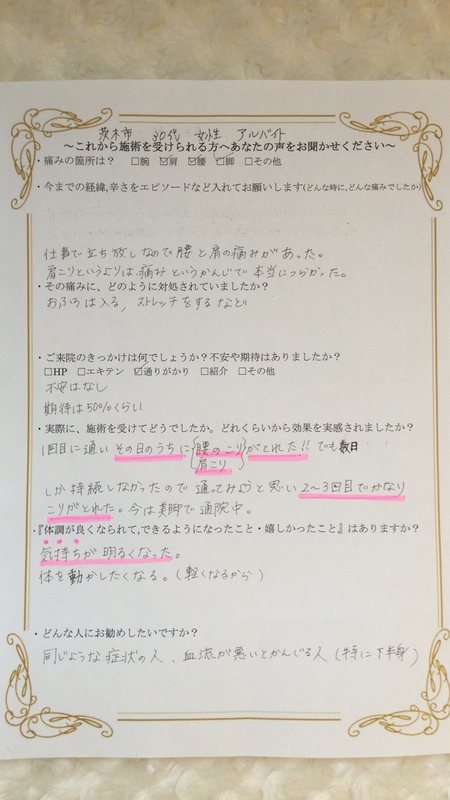 茨木市 30代 女性 アルバイト
～これから施術を受けられる方へあなたの声をお聞かせください～
・痛みの箇所は? □腕 ☑肩 ☑腰 □脚 □その他
・今までの経緯,辛さをエピソードなど入れてお願いします(どんな時に,どんな痛みでしたか)
仕事で立ち放しなので腰と肩の痛みがあった。
肩こりというよりは痛みというかんじで本当につらかった。
・その痛みに、どのように対処されていましたか?
おふろは入る, ストレッチをするなど
・ご来院のきっかけは何でしょうか?不安や期待はありましたか?
□HP □エキテン ☑通りがかり □紹介 □その他
不安はなし
期待は50%くらい
・実際に、施術を受けてどうでしたか。どれくらいから効果を実感されましたか?
1回目に通い その日のうちに{腰のこり}がとれた!! でも数日
{肩こり}
しか持続しなかったので 通ってみようと思い 2～3回目でかなり
こりがとれた。今は美脚で通院中。
・『体調が良くなられて,できるようになったこと・嬉しかったこと』はありますか?
気持ちが明るくなった。
体を動かしたくなる。(軽くなるから)
・どんな人にお勧めしたいですか?
同じような症状の人、血流が悪いとかんじる人(特に下半身)